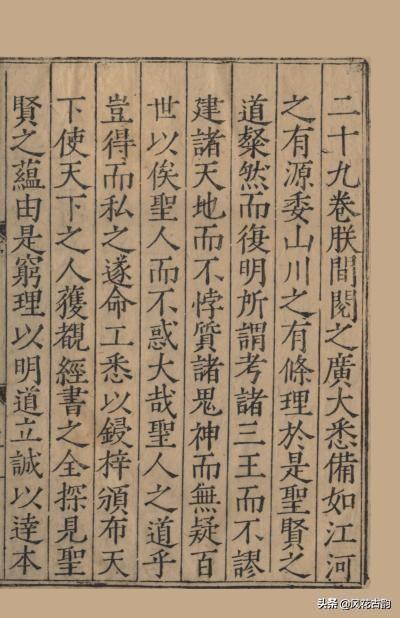 二十九卷朕間閱之廣大悉備如江河
之有源委山川之有條理於是聖賢之
道粲然而復明所謂考諸三王而不謬
建諸天地而不悖質諸鬼神而無疑百
世以俟聖人而不惑大哉聖人之道乎
豈得而私之遂命工悉以鋟梓頒布天
下使天下之人獲覩經書之全探見聖
賢之蘊由是窮理以明道立誠以達本
头条 @风花古韵